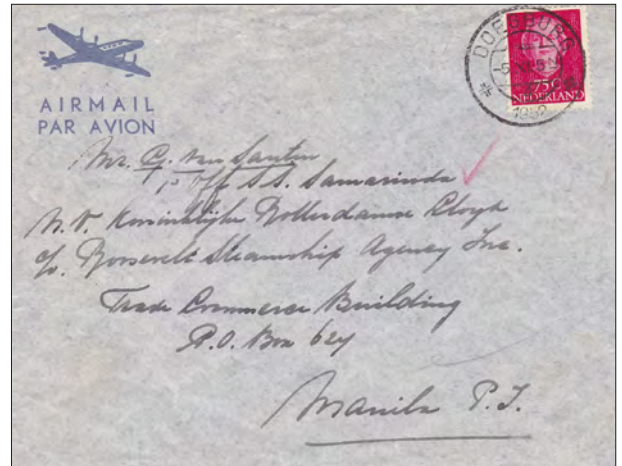 AIRMAIL
PAR AVION
DOESBURG
1952
75C
NEDERLAND
Mr. G. van Santen
off S.S. Samarinda
N.V. Koninklijke Rotterdamse Lloyd
c/o. Roosevelt Steamship Agency Inc.
Trade Commerce Building
P.O. Box 624
Manila P.I.